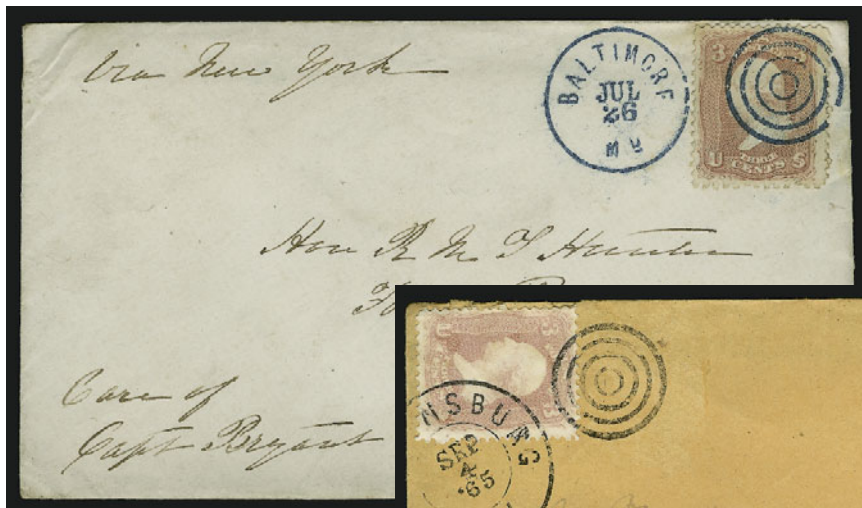 Via New York
BALTIMORE
JUL
26
Md
3
U THREE S
CENTS
Hon R M T Hunter
Care of
Capt Bryant
U 3
NSBURG
SEP
4
'65